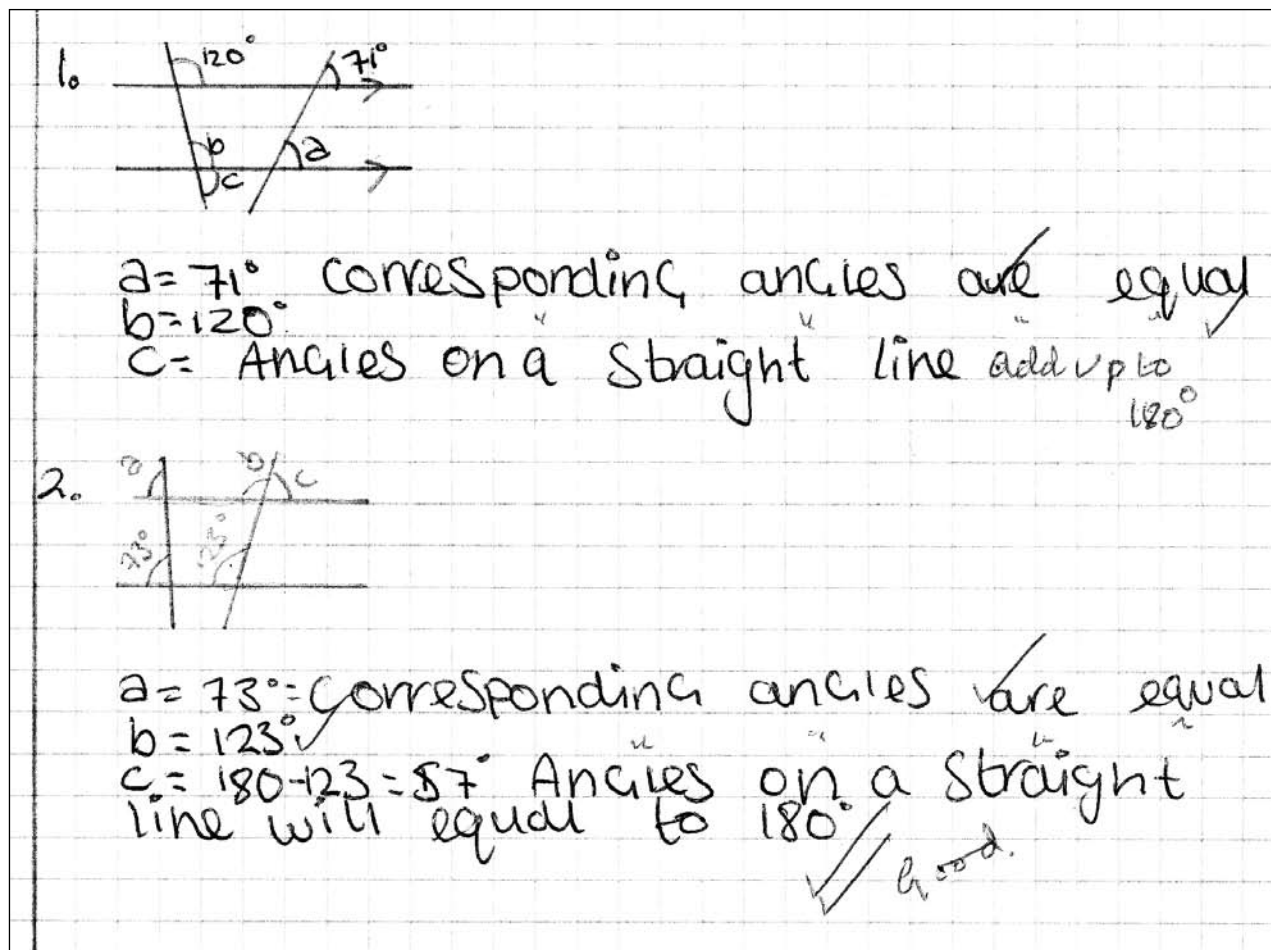 1.
120° 71°
b a
c
a = 71° corresponding angles are equal
b = 120° " " " "
c = Angles on a straight line add up to
180°
2.
a b c
73° 123°
a = 73° = corresponding angles are equal
b = 123° " " " "
c = 180-123 = 57° Angles on a straight
line will equal to 180°
Good.